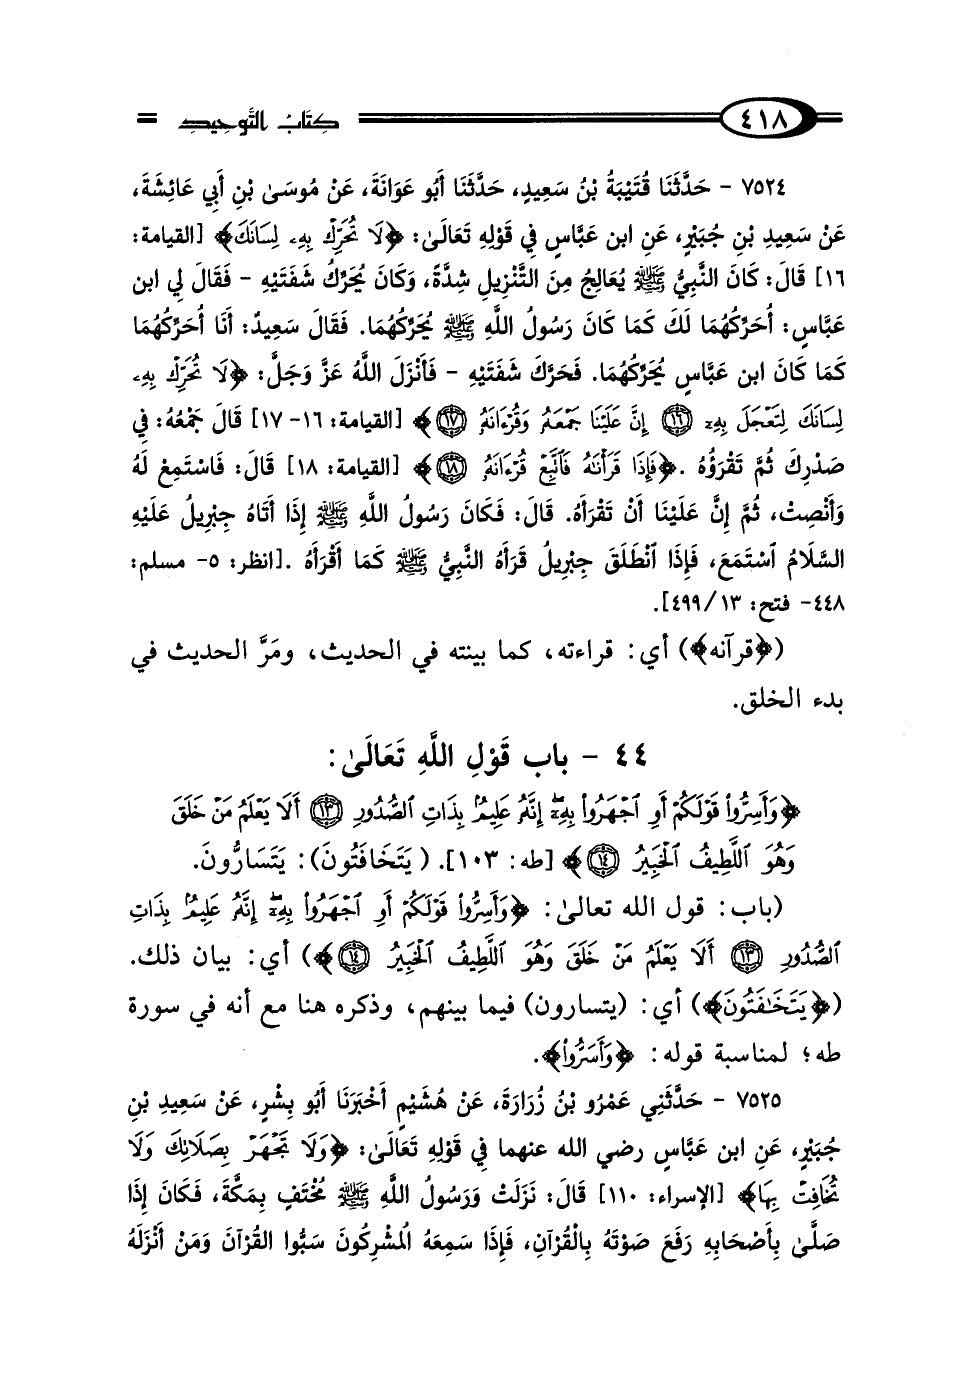 ٤١٨ كِتَابُ التَّوحِيدِ
٧٥٢٤ - حَدَّثَنَا قُتَيْبَةُ بْنُ سَعِيدٍ، حَدَّثَنَا أَبُو عَوَانَةَ، عَنْ مُوسَىٰ بْنِ أَبِي عَائِشَةَ،
عَنْ سَعِيدِ بْنِ جُبَيْرٍ، عَنِ ابن عَبَّاسٍ فِي قَوْلِهِ تَعَالَىٰ: ﴿لَا تُحَرِّكْ بِهِۦ لِسَانَكَ﴾ [القيامة:
١٦] قَالَ: كَانَ النَّبِيُّ ﷺ يُعَالِجُ مِنَ التَّنْزِيلِ شِدَّةً، وَكَانَ يُحَرِّكُ شَفَتَيْهِ - فَقَالَ لِي ابن
عَبَّاسٍ: أُحَرِّكُهُمَا لَكَ كَمَا كَانَ رَسُولُ اللَّهِ ﷺ يُحَرِّكُهُمَا. فَقَالَ سَعِيدٌ: أَنَا أُحَرِّكُهُمَا
كَمَا كَانَ ابن عَبَّاسٍ يُحَرِّكُهُمَا. فَحَرَّكَ شَفَتَيْهِ - فَأَنْزَلَ اللَّهُ عَزَّ وَجَلَّ: ﴿لَا تُحَرِّكْ بِهِۦ
لِسَانَكَ لِتَعْجَلَ بِهِۦٓ ١٦ إِنَّ عَلَيْنَا جَمْعَهُۥ وَقُرْءَانَهُۥ ١٧﴾ [القيامة: ١٦- ١٧] قَالَ جَمْعُهُ: فِي
صَدْرِكَ ثُمَّ تَقْرَؤُهُ .﴿فَإِذَا قَرَأْنَٰهُ فَٱتَّبِعْ قُرْءَانَهُۥ ١٨﴾ [القيامة: ١٨] قَالَ: فَاسْتَمِعْ لَهُ
وَأَنْصِتْ، ثُمَّ إِنَّ عَلَيْنَا أَنْ تَقْرَأَهُ. قَالَ: فَكَانَ رَسُولُ اللَّهِ ﷺ إِذَا أَتَاهُ جِبْرِيلُ عَلَيْهِ
السَّلَامُ ٱسْتَمَعَ، فَإِذَا ٱنْطَلَقَ جِبْرِيلُ قَرَأَهُ النَّبِيُّ ﷺ كَمَا أَقْرَأَهُ .[انظر: ٥- مسلم:
٤٤٨- فتح: ١٣/ ٤٩٩].
(﴿قرآنه﴾) أي: قراءته، كما بينته في الحديث، ومَرَّ الحديث في
بدء الخلق.
٤٤ - باب قَوْلِ اللَّهِ تَعَالَىٰ:
﴿وَأَسِرُّوا۟ قَوْلَكُمْ أَوِ ٱجْهَرُوا۟ بِهِۦٓ إِنَّهُۥ عَلِيمٌۢ بِذَاتِ ٱلصُّدُورِ ١٣ أَلَا يَعْلَمُ مَنْ خَلَقَ
وَهُوَ ٱللَّطِيفُ ٱلْخَبِيرُ ١٤﴾ [طه: ١٠٣]. ( يَتَخَافَتُونَ): يَتَسَارُّونَ.
(باب: قول الله تعالىٰ: ﴿وَأَسِرُّوا۟ قَوْلَكُمْ أَوِ ٱجْهَرُوا۟ بِهِۦٓ إِنَّهُۥ عَلِيمٌۢ بِذَاتِ
ٱلصُّدُورِ ١٣ أَلَا يَعْلَمُ مَنْ خَلَقَ وَهُوَ ٱللَّطِيفُ ٱلْخَبِيرُ ١٤﴾) أي: بيان ذلك.
(﴿يَتَخَٰفَتُونَ﴾) أي: (يتسارون) فيما بينهم، وذكره هنا مع أنه في سورة
طه؛ لمناسبة قوله: ﴿وَأَسَرُّوا۟﴾.
٧٥٢٥ - حَدَّثَنِي عَمْرُو بْنُ زُرَارَةَ، عَنْ هُشَيْمٍ أَخْبَرَنَا أَبُو بِشْرٍ، عَنْ سَعِيدِ بْنِ
جُبَيْرٍ، عَنِ ابن عَبَّاسٍ رضي الله عنهما فِي قَوْلِهِ تَعَالَىٰ: ﴿وَلَا تَجْهَرْ بِصَلَاتِكَ وَلَا
تُخَافِتْ بِهَا﴾ [الإسراء: ١١٠] قَالَ: نَزَلَتْ وَرَسُولُ اللَّهِ ﷺ مُخْتَفٍ بِمَكَّةَ، فَكَانَ إِذَا
صَلَّىٰ بِأَصْحَابِهِ رَفَعَ صَوْتَهُ بِالْقُرْآنِ، فَإِذَا سَمِعَهُ الْمُشْرِكُونَ سَبُّوا القُرْآنَ وَمَنْ أَنْزَلَهُ